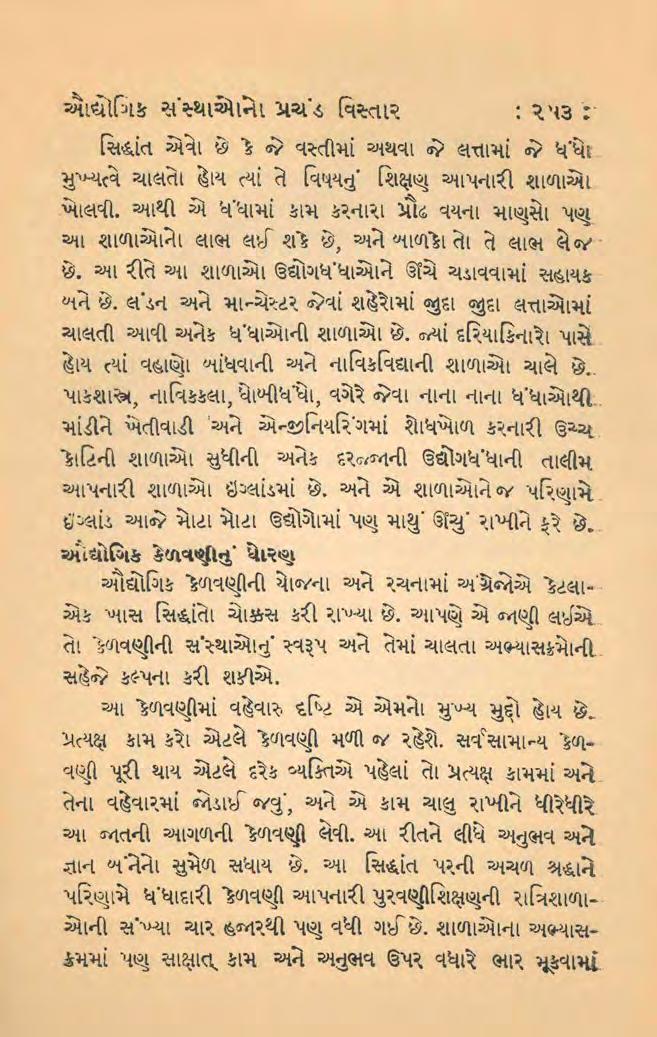 ઔદ્યોગિક સંસ્થાઓનો પ્રચંડ વિસ્તાર : ૨૫૩ :
સિદ્ધાંત એવો છે કે જે વસ્તીમાં અથવા જે લત્તામાં જે ધંધો
મુખ્યત્વે ચાલતો હોય ત્યાં તે વિષયનું શિક્ષણ આપનારી શાળાઓ
ખોલવી. આથી એ ધંધામાં કામ કરનારા પ્રૌઢ વયના માણસો પણ
આ શાળાઓનો લાભ લઈ શકે છે, અને બાળકો તો તે લાભ લેજ
છે. આ રીતે આ શાળાઓ ઉદ્યોગધંધાઓને ઊંચે ચડાવવામાં સહાયક
બને છે. લંડન અને માન્ચેસ્ટર જેવાં શહેરોમાં જુદા જુદા લત્તાઓમાં
ચાલતી આવી અનેક ધંધાઓની શાળાઓ છે. જ્યાં દરિયાકિનારો પાસે
હોય ત્યાં વહાણો બાંધવાની અને નાવિકવિદ્યાની શાળાઓ ચાલે છે.
પાકશાસ્ત્ર, નાવિકકલા, ધોબીધંધો, વગેરે જેવા નાના નાના ધંધાઓથી
માંડીને ખેતીવાડી અને એન્જીનિયરિંગમાં શોધખોળ કરનારી ઉચ્ચ
કોટિની શાળાઓ સુધીની અનેક દરજ્જાની ઉદ્યોગધંધાની તાલીમ
આપનારી શાળાઓ ઇંગ્લાંડમાં છે. અને એ શાળાઓને જ પરિણામે
ઇંગ્લાંડ આજે મોટા મોટા ઉદ્યોગોમાં પણ માથું ઊંચું રાખીને ફરે છે.
ઔદ્યોગિક કેળવણીનું ધોરણ
ઔદ્યોગિક કેળવણીની યોજના અને રચનામાં અંગ્રેજોએ કેટલા-
એક ખાસ સિદ્ધાંતો ચોક્કસ કરી રાખ્યા છે. આપણે એ જાણી લઈએ
તો કેળવણીની સંસ્થાઓનું સ્વરૂપ અને તેમાં ચાલતા અભ્યાસક્રમોની
સહેજે કલ્પના કરી શકીએ.
આ કેળવણીમાં વહેવારુ દષ્ટિ એ એમનો મુખ્ય મુદ્દો હોય છે.
પ્રત્યક્ષ કામ કરો એટલે કેળવણી મળી જ રહેશે. સર્વસામાન્ય કેળ-
વણી પૂરી થાય એટલે દરેક વ્યક્તિએ પહેલાં તો પ્રત્યક્ષ કામમાં અને
તેના વહેવારમાં જોડાઈ જવું, અને એ કામ ચાલુ રાખીને ધીરેધીરે
આ જાતની આગળની કેળવણી લેવી. આ રીતને લીધે અનુભવ અને
જ્ઞાન બંનેનો સુમેળ સધાય છે. આ સિદ્ધાંત પરની અચળ શ્રદ્ધાને
પરિણામે ધંધાદારી કેળવણી આપનારી પુરવણીશિક્ષણની રાત્રિશાળા-
ઓની સંખ્યા ચાર હજારથી પણ વધી ગઈ છે. શાળાઓના અભ્યાસ-
ક્રમમાં પણ સાક્ષાત્ કામ અને અનુભવ ઉપર વધારે ભાર મૂકવામાં